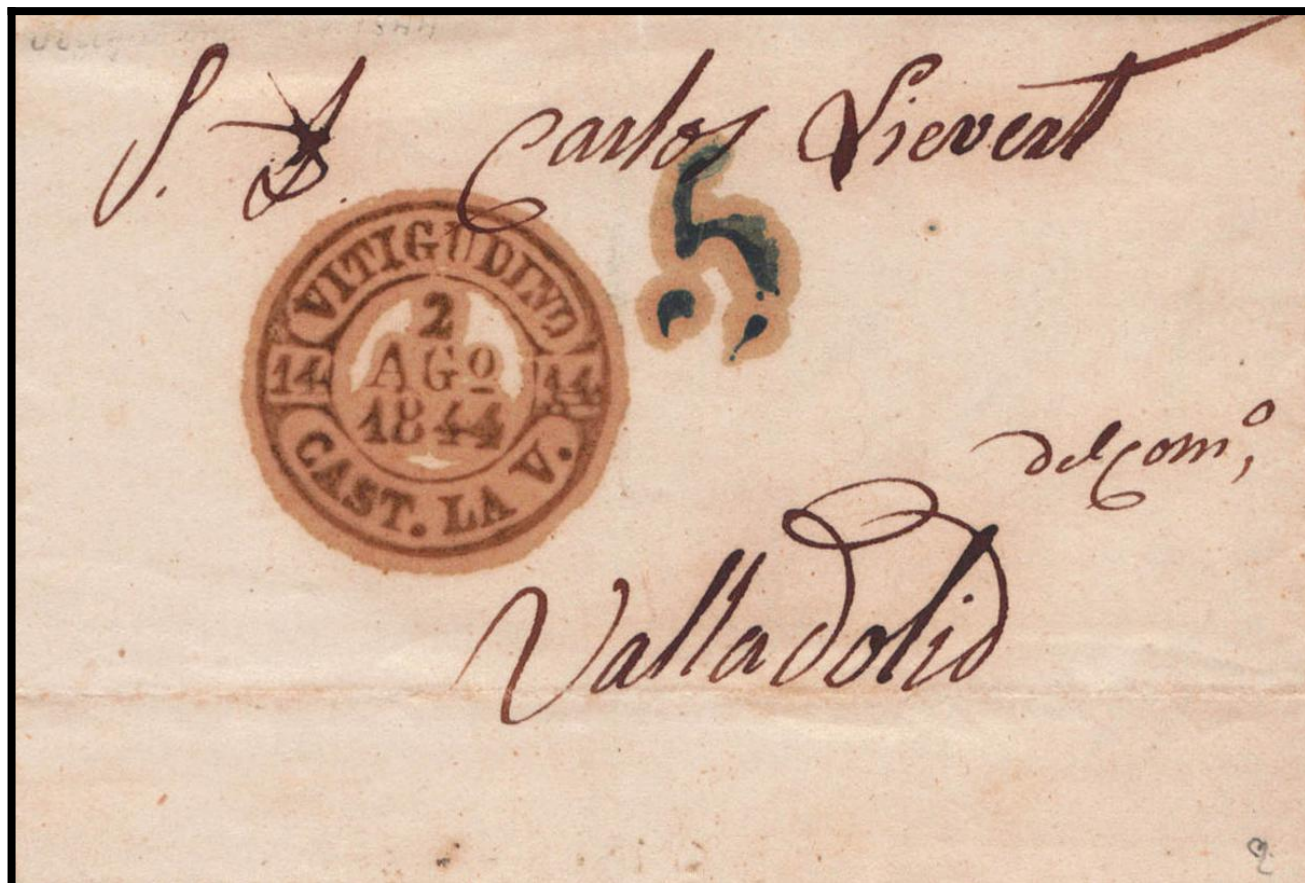 S. D. Carlos Lievert
5
VITIGUDINO
14 14
2
AGO
1844
CAST. LA V.
del Com.º,
Valladolid